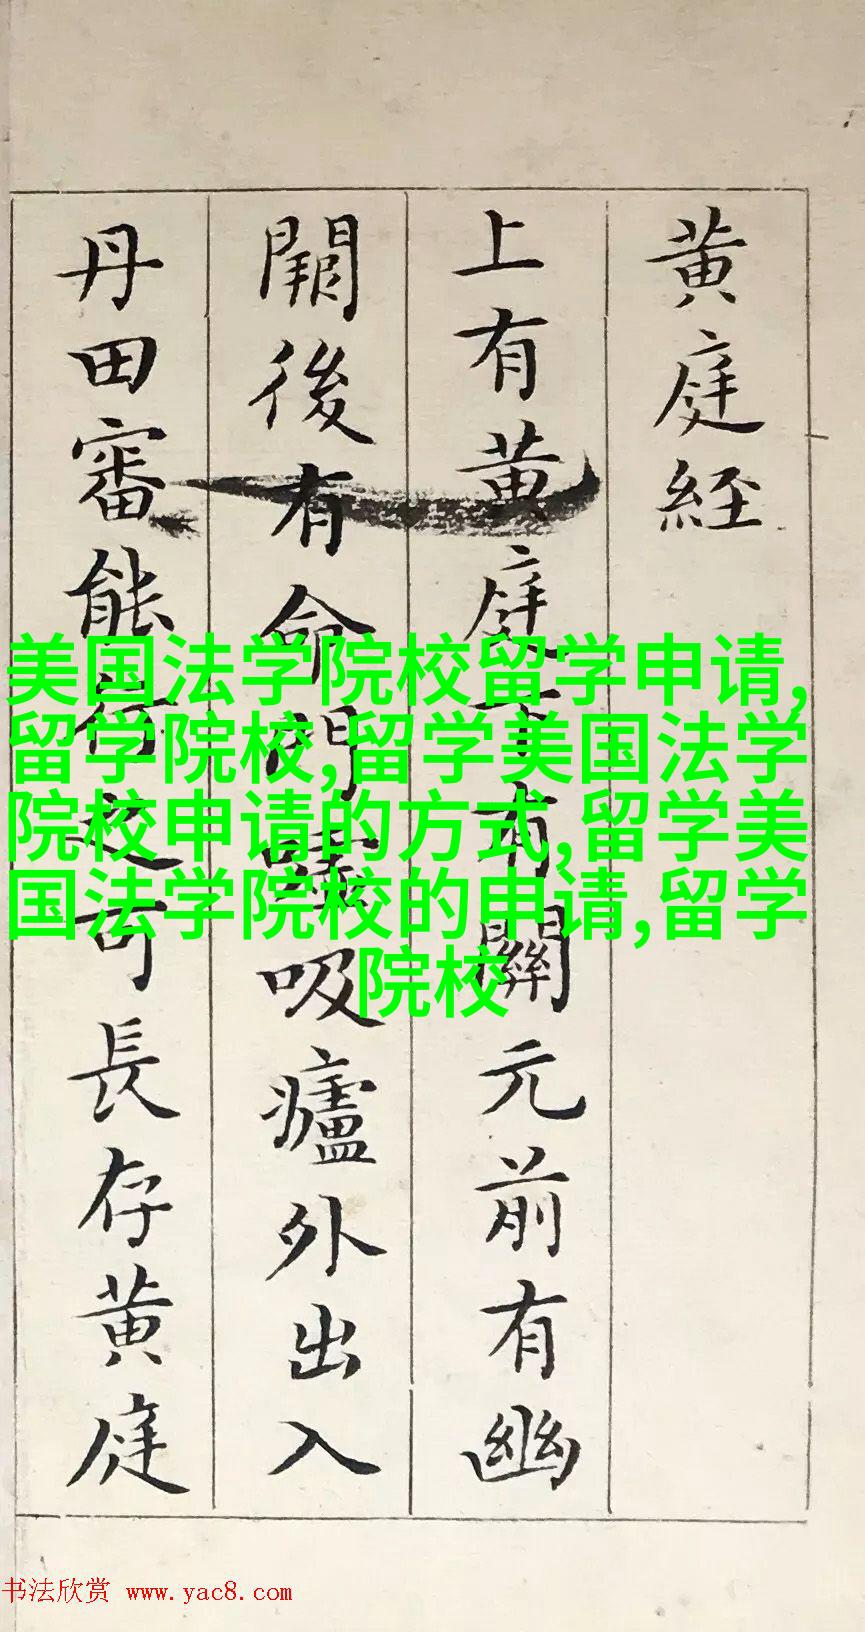 黄庭經
上有黄庭下有關元前有幽
闕後有命門噓吸廬外出入
丹田審能行之可長存黄庭
美国法学院校留学申请,
留学院校,留学美国法学
院校申请的方式,留学美
国法学院校的申请,留学
院校
书法欣赏 www.yac8.com